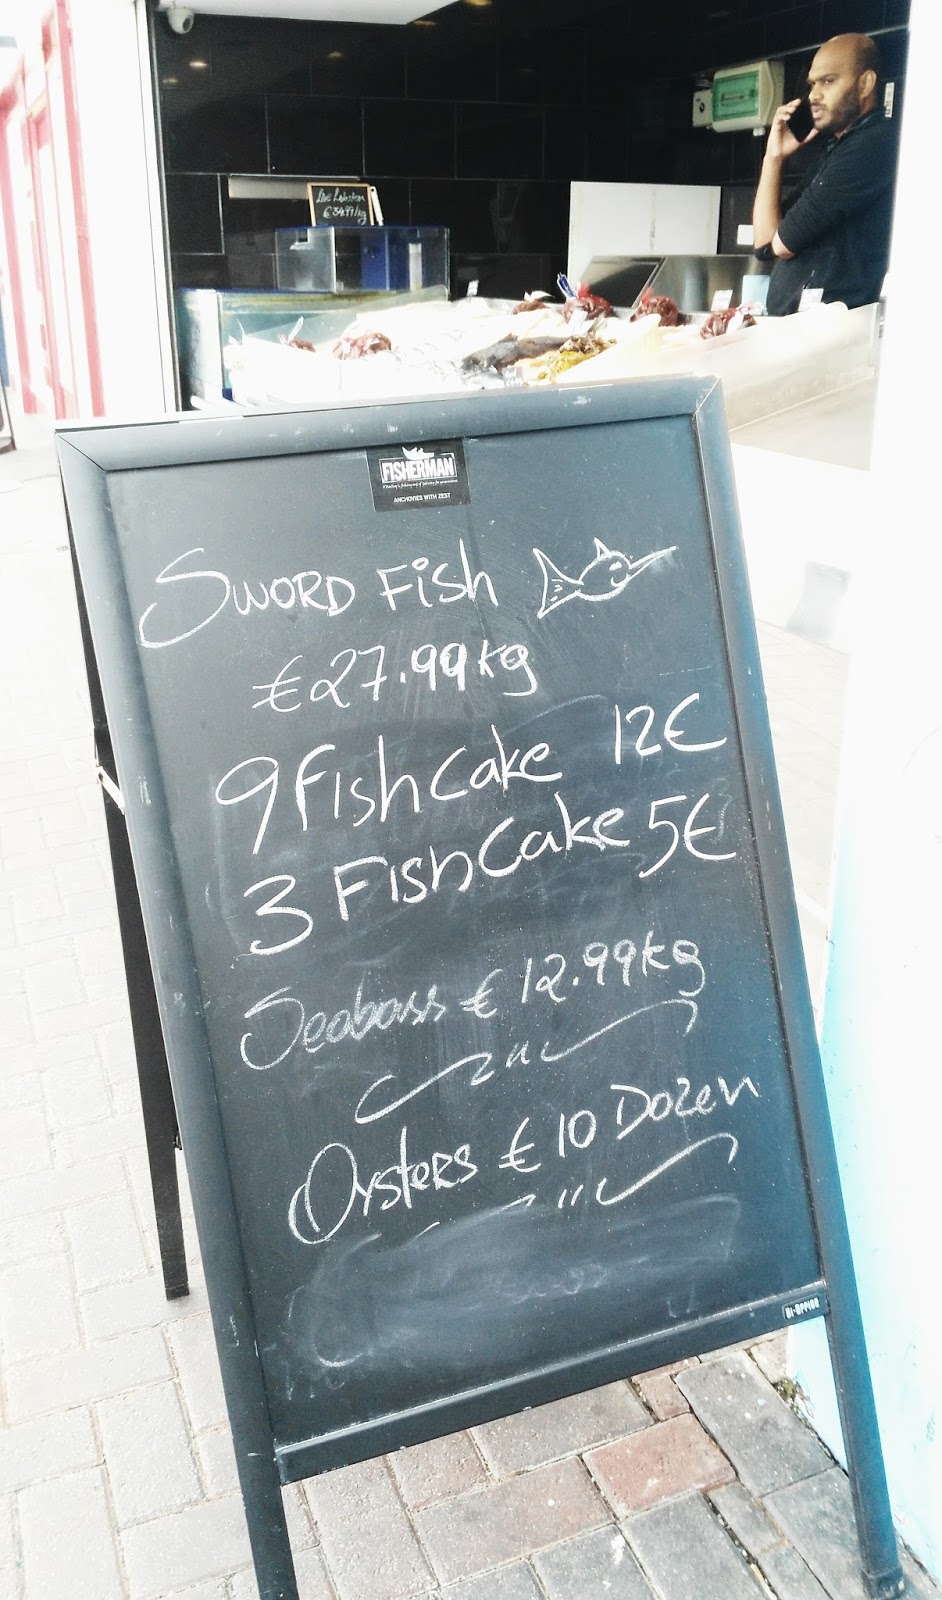 Live Lobster
€34.99/kg
FISHERMAN
ANCHOVIES WITH ZEST
SWORD FISH
€27.99kg
9 FISHCAKE 12€
3 FISHCAKE 5€
Seabass €12.99kg
Oysters €10 Dozen
Bi-Office